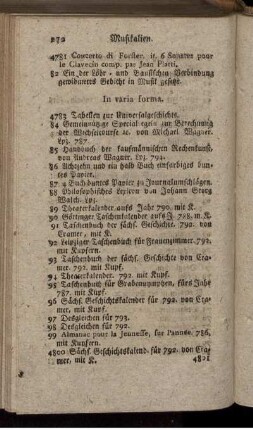 Musikalien.
4781 Concerto di Forster. it. 6 Sonates pour
le Clavecin comp. par Jean Platti.
82 Ein der Löhr- und Bausischen Verbindung
gewidmetes Gedicht in Musik gesetzt.
In varia forma.
4783 Tabellen zur Universalgeschichte.
84 Gemeinnützige Special zur Berechnung
der Wechselcourse ic. von Michael Wagner.
Lpz. 787.
85 Handbuch der kaufmännischen Rechenkunst,
von Andreas Wagner. Lpz. 794.
86 Achtzehn und ein halb Buch einfarbiges bun-
tes Papier.
87 4 Buch buntes Papier zu Journalumschlägen.
88 Philosophisches Lexicon von Johann Georg
Walch. Lpz.
89 Theaterkalender aufs Jahr 790. mit K.
90 Göttinger Taschenkalender aufs J. 788. m. K.
91 Taschenbuch der sächs. Geschichte, von
Cramer, mit K.
92 Leipziger Taschenbuch für Frauenzimmer. 792.
mit Kupfern.
93 Taschenbuch der sächs. Geschichte von Cra-
mer, 792. mit Kupf.
94 Theaterkalender. 792. mit Kupf.
95 Taschenbuch für Grabennymphen, fürs Jahr
787. mit Kupf.
96 Sächs. Geschichtskalender für 792. von Cra-
mer, mit K.
97 Desgleichen für 793.
98 Desgleichen für 792.
99 Almanac pour la Jeunesse, sur l'année. 786.
mit Kupfern.
4800 Sächs. Geschichtskalend. für 792. von Cra-
mer, mit K.
4801